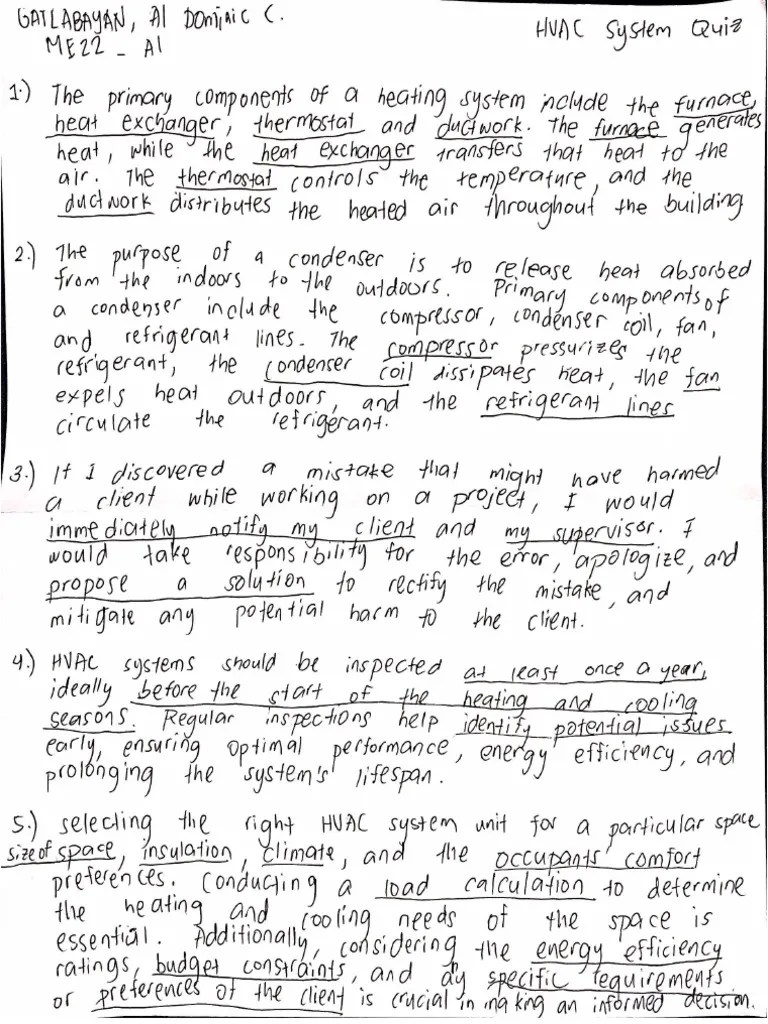 GATLABAYAN, Al Dominic C.
HVAC System Quiz
ME22 - A1
1.) The primary components of a heating system include the furnace,
heat exchanger, thermostat and ductwork. The furnace generates
heat, while the heat exchanger transfers that heat to the
air. The thermostat controls the temperature, and the
ductwork distributes the heated air throughout the building
2.) The purpose of a condenser is to release heat absorbed
from the indoors to the outdoors. Primary components of
a condenser include the compressor, condenser coil, fan,
and refrigerant lines. The compressor pressurizes the
refrigerant, the condenser coil dissipates heat, the fan
expels heat outdoors, and the refrigerant lines
circulate the refrigerant.
3.) If I discovered a mistake that might have harmed
a client while working on a project, I would
immediately notify my client and my supervisor. I
would take responsibility for the error, apologize, and
propose a solution to rectify the mistake, and
mitigate any potential harm to the client.
4.) HVAC systems should be inspected at least once a year,
ideally before the start of the heating and cooling
seasons. Regular inspections help identify potential issues
early, ensuring optimal performance, energy efficiency, and
prolonging the system's lifespan.
5.) selecting the right HVAC system unit for a particular space
size of space, insulation, climate, and the occupants' comfort
preferences. Conducting a load calculation to determine
the heating and cooling needs of the space is
essential. Additionally, considering the energy efficiency
ratings, budget constraints, and ay specific requirements
or preferences of the client is crucial in making an informed decision.